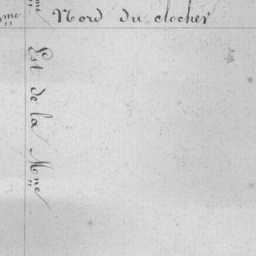 Nord du clocher
Est de la M.ne